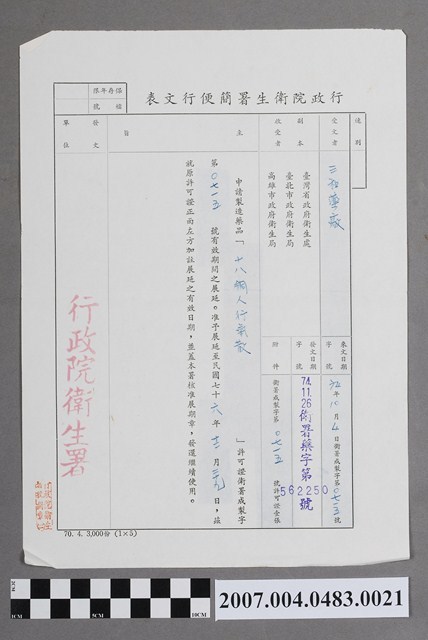 行政院衛生署簡便行文表
保存年限
檔號
速別
受文者
三和藥廠
副本
收受者
臺灣省政府衛生處
臺北市政府衛生局
高雄市政府衛生局
來文日期
字號
年10月4日衛署成製字第0715號
發文日期
字號
74.11.26衛署藥字第562250號
附件
衛署成製字第0715號許可證壹張
主
旨
申請製造藥品「十八網人行氣散」許可證衛署成製字
第0715號有效期間之展延。准予展延至民國七十六年十二月三十日,茲
就原許可證正面左方加註展延之有效日期,並蓋本署核准展期章,發還繼續使用。
發文
單位
行政院衛生署
70.4.3,000份(1×5)
2007.004.0483.0021